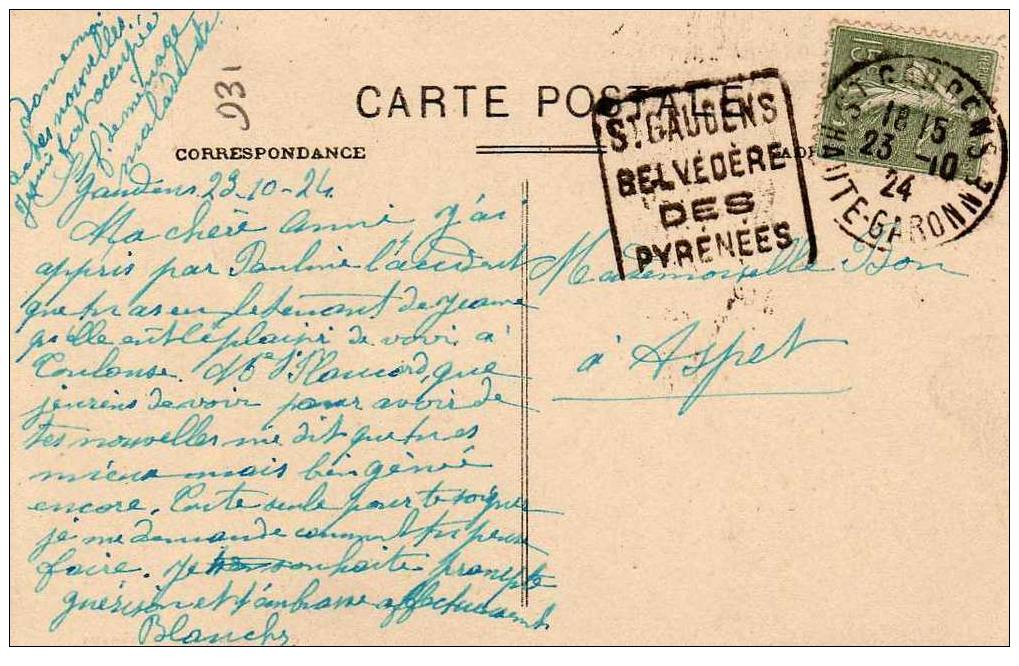 donne moi
de tes nouvelles
je suis fort préoccupée
f. de ménage
malade
931
CARTE POSTALE
CORRESPONDANCE
ST GAUDENS
BELVÉDÈRE
DES
PYRÉNÉES
ST GAUDENS
18 15
23 -10
24
HAUTE-GARONNE
St Gaudens 23-10-24
Ma chère Anni, j'ai
appris par Pauline l'accident
que tu as eu le tenant de Jeanne
qu'elle eût le plaisir de voir à
Toulouse. Me Plancard, que
je viens de voir pour avoir de
tes nouvelles me dit que tu es
mieux mais bien gênée
encore. Toute seule pour te soigner
je me demande comment tu peux
faire. Je souhaite prompte
guérison et t'embrasse affectueusement
Blanche
Mademoiselle
à Aspet